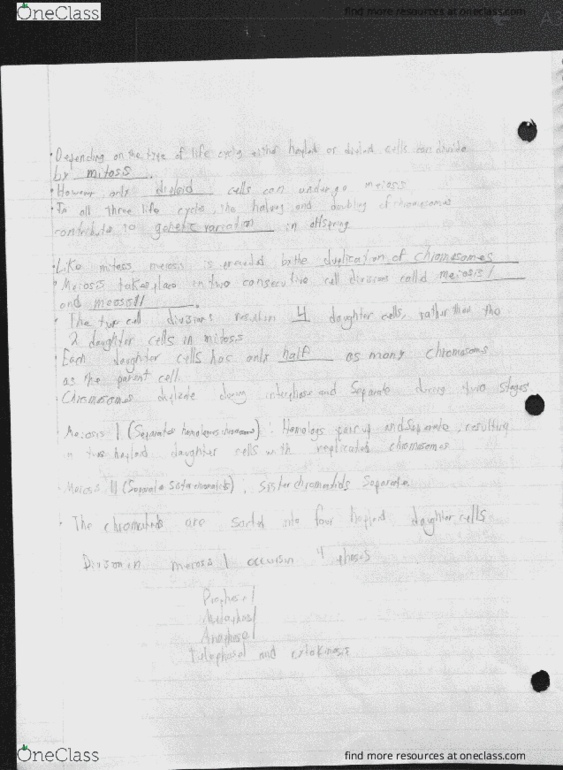 OneClass
find more resources at oneclass.com
• Depending on the type of life cycle either haploid or diploid cells can divide
by mitosis.
• However only diploid cells can undergo meiosis
• In all three life cycle, the halving and doubling of chromosomes
contribute to genetic variation in offspring
• Like mitosis, meiosis is preceded by the duplication of chromosomes
• Meiosis takes place in two consecutive cell divisions called meiosis I
and meiosis II.
• The two cell divisions result in 4 daughter cells, rather than the
2 daughter cells in mitosis
• Each daughter cells has only half as many chromosomes
as the parent cell
Chromosomes duplicate during interphase and separate during two stages
• Meiosis I (Separates homologous chromosomes): Homologs pair up and separate, resulting
in two haploid daughter cells with replicated chromosomes
• Meiosis II (Separate sister chromatids), sister chromatids separate
• The chromatids are sorted into four haploid daughter cells
Division in meiosis I occurs in 4 phases
Prophase I
Metaphase I
Anaphase I
Telophase I and cytokinesis
OneClass
find more resources at oneclass.com